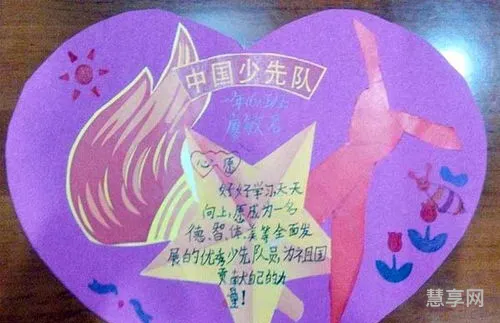 中国少先队
心愿
好好学习天天
向上,愿成为一名
德、智、体、美等全面发
展的优秀少先队员,为祖国
贡献自己的力
量!
慧享网